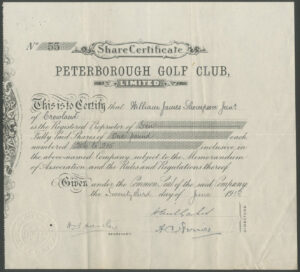 No 55
Share Certificate
PETERBOROUGH GOLF CLUB,
LIMITED
This is to Certify that William James Thompson
of Crowland
is the Registered Proprietor of Ten
Fully paid Shares of One pound each
numbered to inclusive, in
the above-named Company, subject to the Memorandum
of Association, and the Rules and Regulations thereof.
Given under the Common Seal of the said Company
the day of June 19
SECRETARY